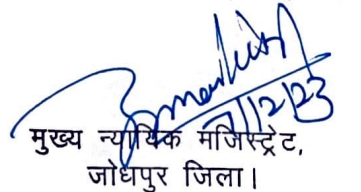 7/12/23
मुख्य न्यायिक मजिस्ट्रेट,
जोधपुर जिला।